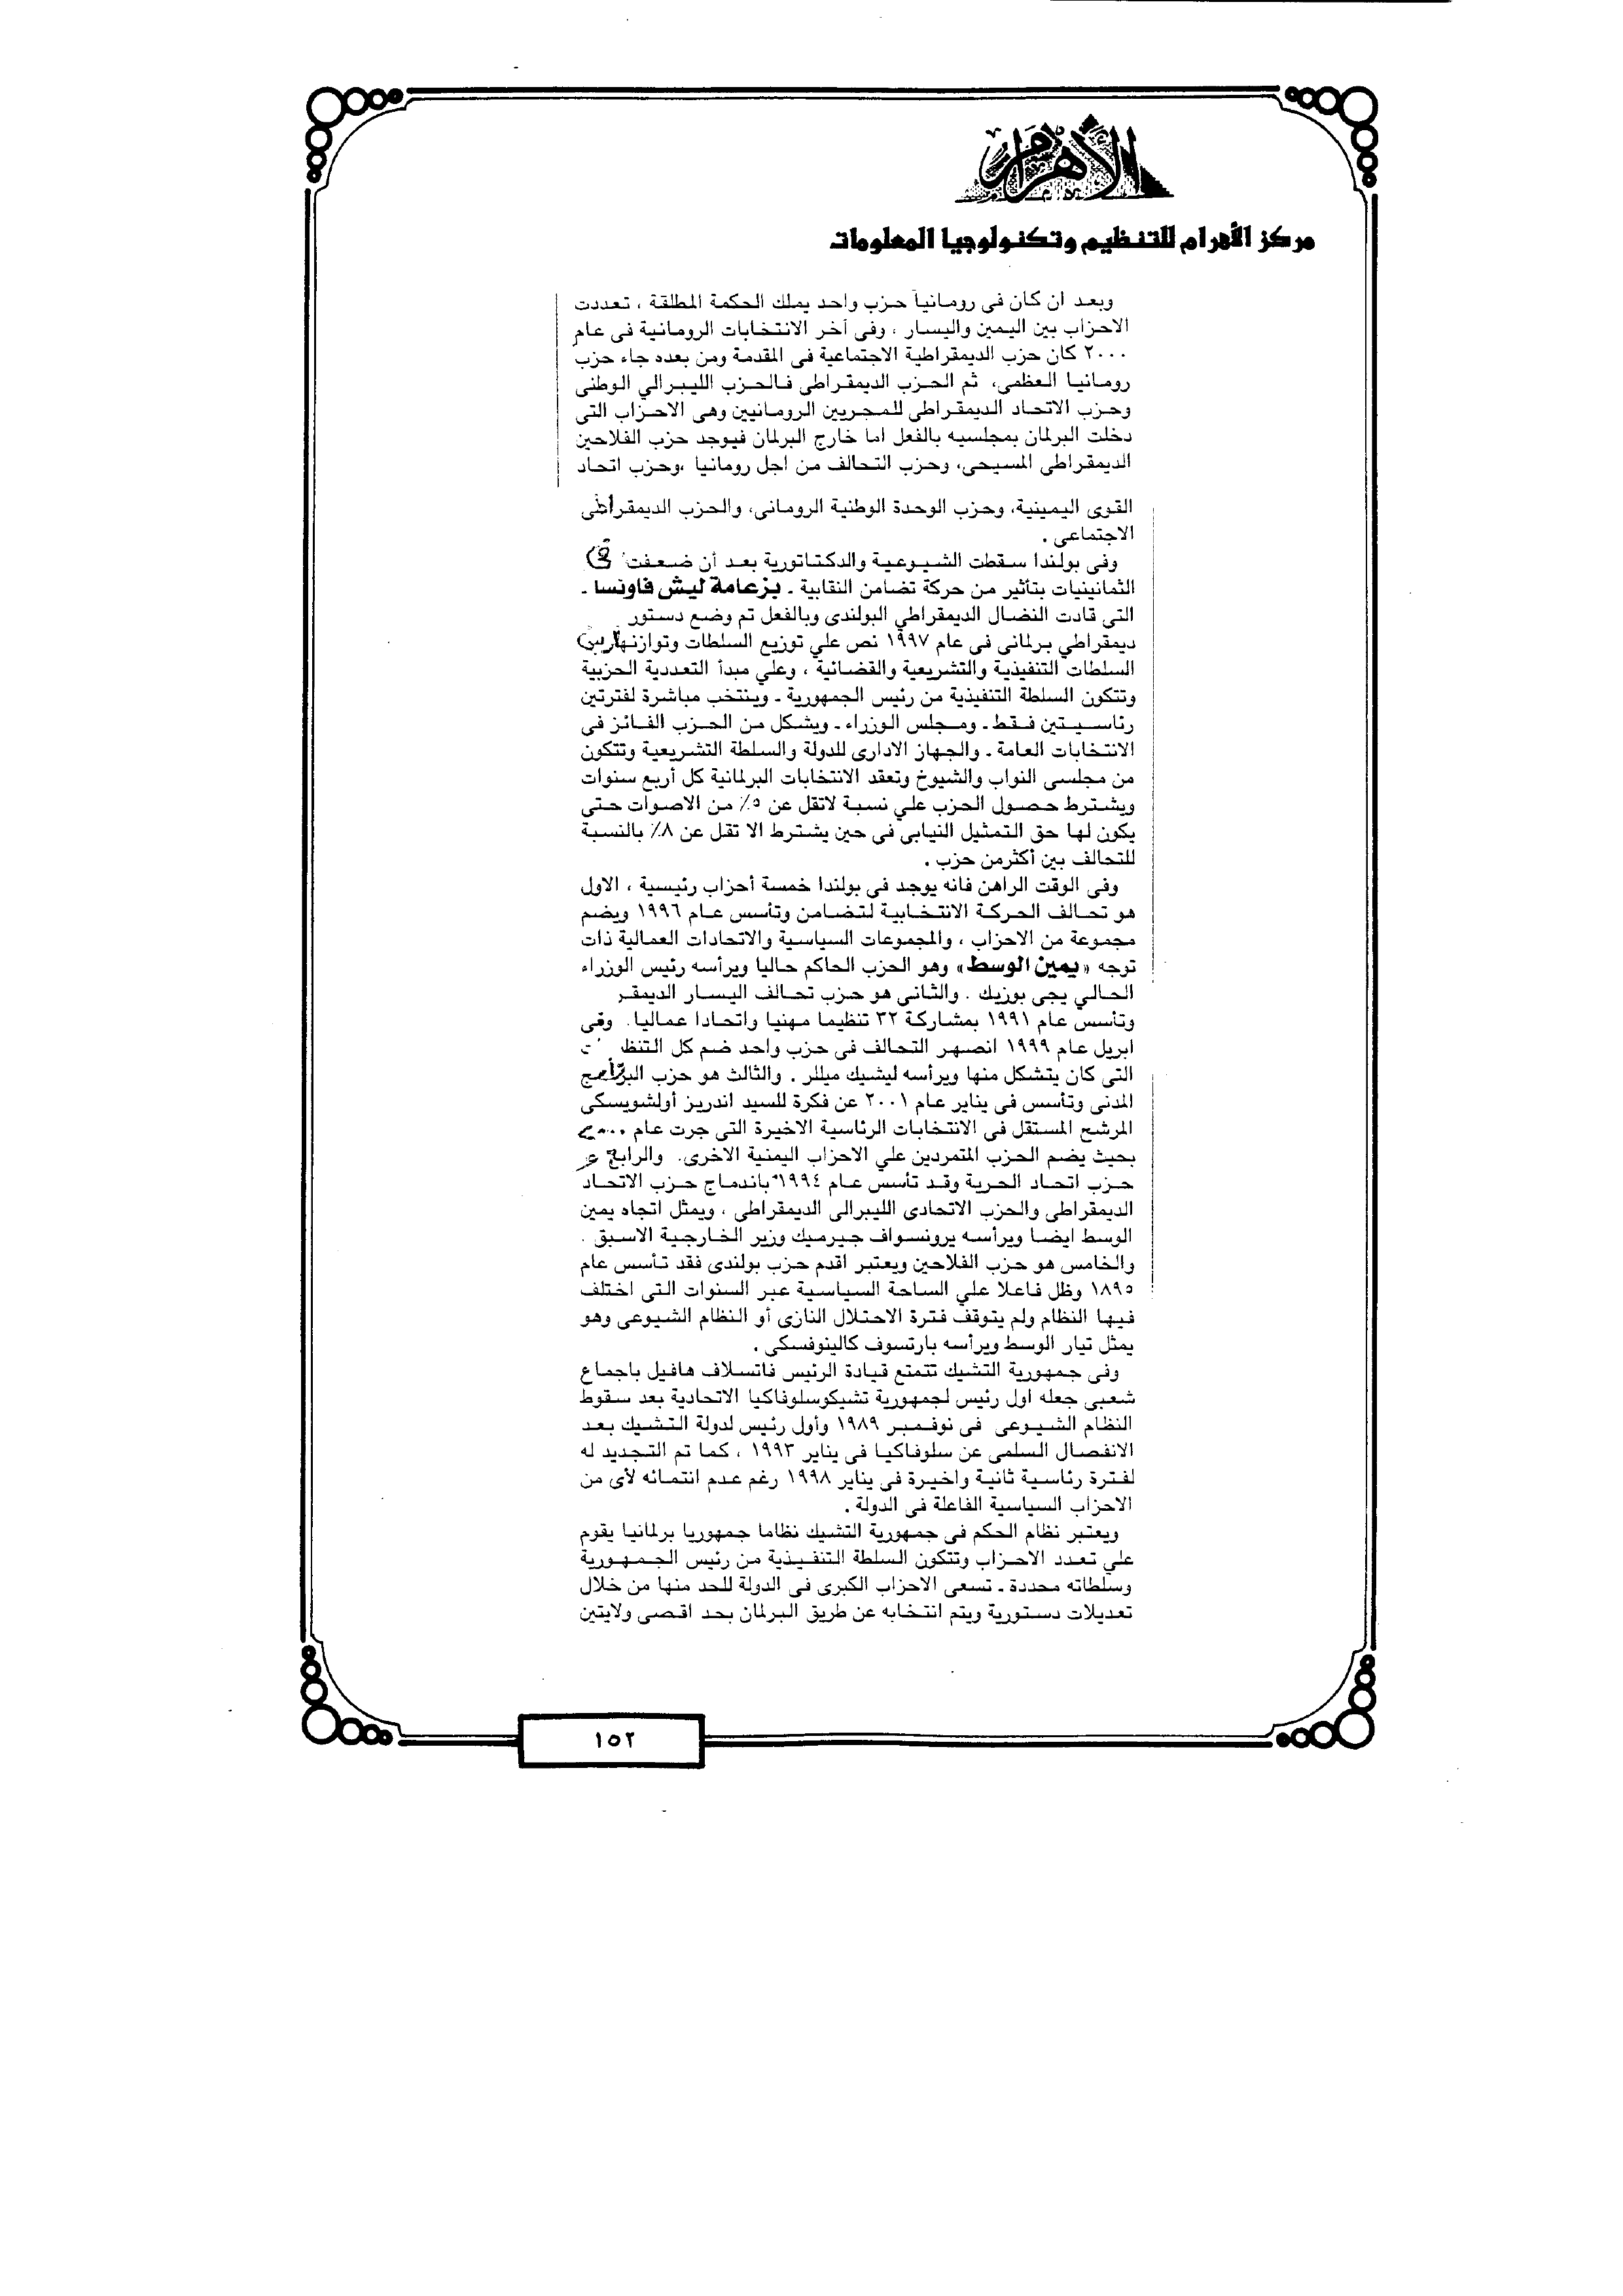 الأهرام
مركز الأهرام للتنظيم وتكنولوجيا المعلومات
وبعد ان كان فى رومانيا حزب واحد يملك الحكمة المطلقة ، تعددت
الاحزاب بين اليمين واليسار ، وفى آخر الانتخابات الرومانية فى عام
٢٠٠٠ كان حزب الديمقراطية الاجتماعية فى المقدمة ومن بعده جاء حزب
رومانيا العظمى، ثم الحزب الديمقراطى فالحزب الليبرالي الوطنى
وحزب الاتحاد الديمقراطى للمجريين الرومانيين وهى الاحزاب التى
دخلت البرلمان بمجلسيه بالفعل اما خارج البرلمان فيوجد حزب الفلاحين
الديمقراطى المسيحى، وحزب التحالف من اجل رومانيا ،وحزب اتحاد
القوى اليمينية، وحزب الوحدة الوطنية الرومانى، والحزب الديمقراطى
الاجتماعى .
وفى بولندا سقطت الشيوعية والدكتاتورية بعد أن ضعفت فى
الثمانينيات بتأثير من حركة تضامن النقابية ـ بزعامة ليش فاونسا ـ
التى قادت النضال الديمقراطي البولندى وبالفعل تم وضع دستور
ديمقراطي برلمانى فى عام ١٩٩٧ نص علي توزيع السلطات وتوازنها بين
السلطات التنفيذية والتشريعية والقضائية ، وعلي مبدأ التعددية الحزبية
وتتكون السلطة التنفيذية من رئيس الجمهورية ـ وينتخب مباشرة لفترتين
رئاسيتين فقط ـ ومجلس الوزراء ـ ويشكل من الحزب الفائز فى
الانتخابات العامة ـ والجهاز الادارى للدولة والسلطة التشريعية وتتكون
من مجلسى النواب والشيوخ وتعقد الانتخابات البرلمانية كل أربع سنوات
ويشترط حصول الحزب علي نسبة لاتقل عن ٥٪ من الاصوات حتى
يكون لها حق التمثيل النيابى فى حين يشترط الا تقل عن ٨٪ بالنسبة
للتحالف بين أكثرمن حزب .
وفى الوقت الراهن فانه يوجد فى بولندا خمسة أحزاب رئيسية ، الاول
هو تحالف الحركة الانتخابية لتضامن وتأسس عام ١٩٩٦ ويضم
مجموعة من الاحزاب ، والمجموعات السياسية والاتحادات العمالية ذات
توجه «يمين الوسط» وهو الحزب الحاكم حاليا ويرأسه رئيس الوزراء
الحالي يجى بوزيك . والثانى هو حزب تحالف اليسار الديمقر
وتأسس عام ١٩٩١ بمشاركة ٣٢ تنظيما مهنيا واتحادا عماليا. وفى
ابريل عام ١٩٩٩ انصهر التحالف فى حزب واحد ضم كل التنظ
التى كان يتشكل منها ويرأسه ليشيك ميللر . والثالث هو حزب البرنامج
المدنى وتأسس فى يناير عام ٢٠٠١ عن فكرة للسيد اندريز أولشويسكى
المرشح المستقل فى الانتخابات الرئاسية الاخيرة التى جرت عام ٢٠٠٠
بحيث يضم الحزب المتمردين علي الاحزاب اليمنية الاخرى. والرابع
حزب اتحاد الحرية وقد تأسس عام ١٩٩٤ باندماج حزب الاتحاد
الديمقراطى والحزب الاتحادى الليبرالى الديمقراطى ، ويمثل اتجاه يمين
الوسط ايضا ويرأسه يرونسواف جيرميك وزير الخارجية الاسبق .
والخامس هو حزب الفلاحين ويعتبر اقدم حزب بولندى فقد تأسس عام
١٨٩٥ وظل فاعلا علي الساحة السياسية عبر السنوات التى اختلف
فيها النظام ولم يتوقف فترة الاحتلال النازى أو النظام الشيوعى وهو
يمثل تيار الوسط ويرأسه بارتسوف كالينوفسكى .
وفى جمهورية التشيك تتمتع قيادة الرئيس فاتسلاف هافيل باجماع
شعبى جعله أول رئيس لجمهورية تشيكوسلوفاكيا الاتحادية بعد سقوط
النظام الشيوعى فى نوفمبر ١٩٨٩ وأول رئيس لدولة التشيك بعد
الانفصال السلمى عن سلوفاكيا فى يناير ١٩٩٣ ، كما تم التجديد له
لفترة رئاسية ثانية واخيرة فى يناير ١٩٩٨ رغم عدم انتمائه لأى من
الاحزاب السياسية الفاعلة فى الدولة .
ويعتبر نظام الحكم فى جمهورية التشيك نظاما جمهوريا برلمانيا يقوم
علي تعدد الاحزاب وتتكون السلطة التنفيذية من رئيس الجمهورية
وسلطاته محددة ـ تسعى الاحزاب الكبرى فى الدولة للحد منها من خلال
تعديلات دستورية ويتم انتخابه عن طريق البرلمان بحد اقصى ولايتين
١٥٢